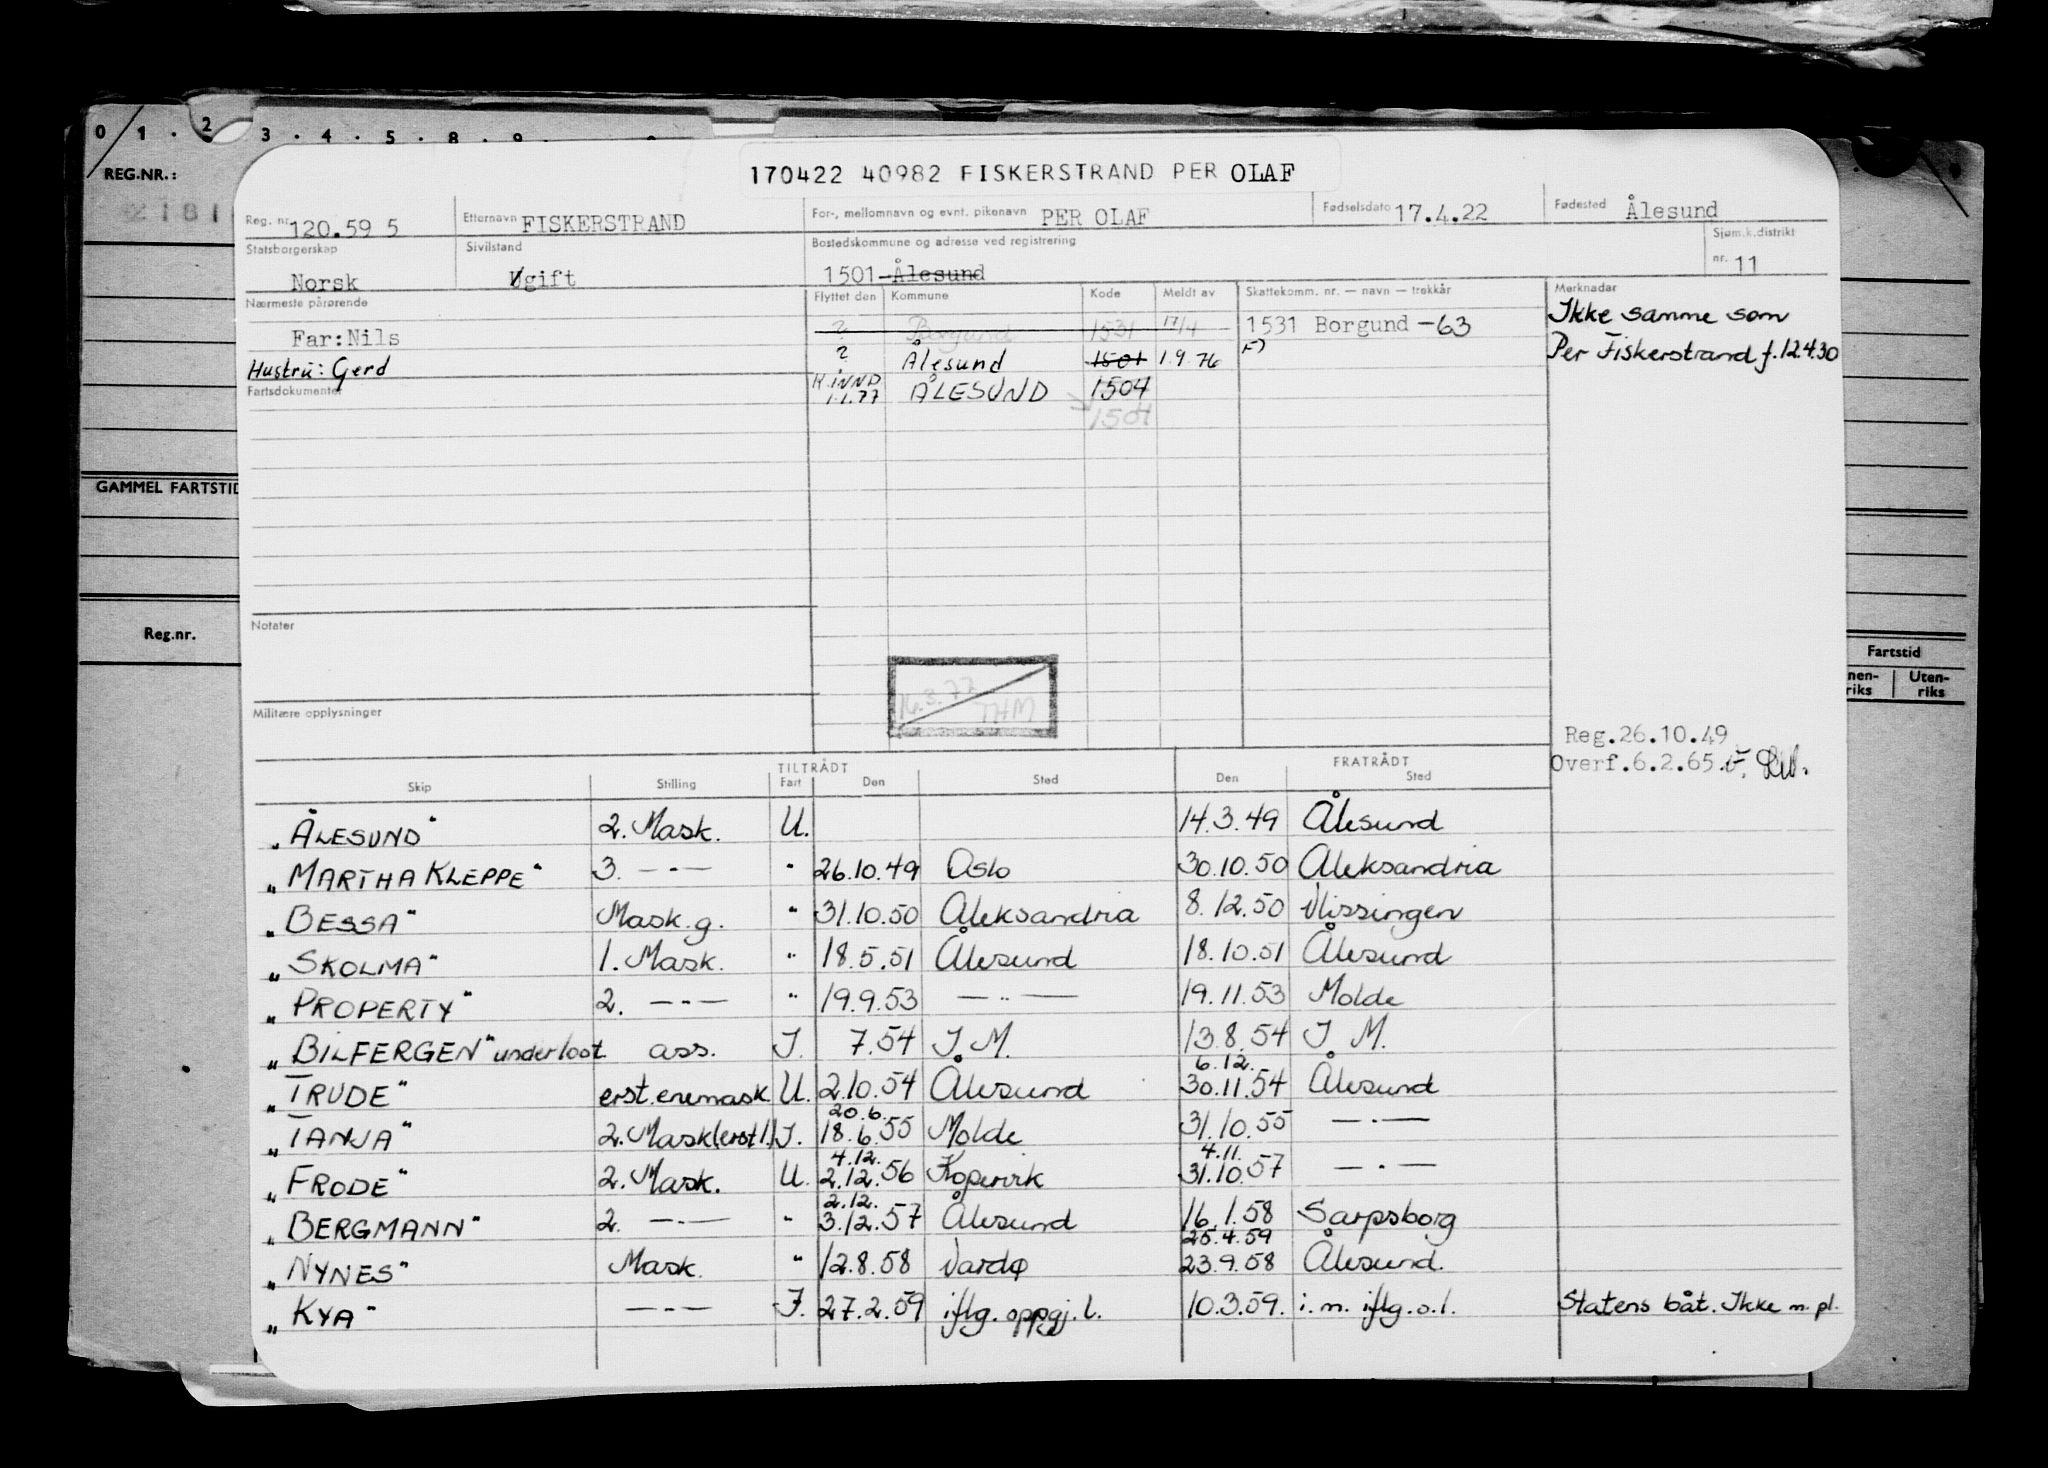 0 1 . 2 3 . 4 . 5 . 8 . 9 .
REG.NR.:
GAMMEL FARTSTID
Reg.nr.
Fartstid
nen-riks Uten-riks
170422 40982 FISKERSTRAND PER OLAF
Reg. nr. 120.59 5 Etternavn FISKERSTRAND For-, mellomnavn og evnt. pikenavn PER OLAF Fødselsdato 17.4.22 Fødested Ålesund
Statsborgerskap Norsk Sivilstand Ugift Bostedskommune og adresse ved registrering 1501-Ålesund Sjøm.k.distrikt nr. 11
Nærmeste pårørende Flyttet den Kommune Kode Meldt av Skattekomm. nr. — navn — trekkår Merknader
Far:Nils ? Borgund 1531 17/4 1531 Borgund -63 Ikke samme som
Hustru: Gerd ? Ålesund 1501 1.9.76 F) Per Fiskerstrand f. 12.4.30
Fartsdokumenter K.INND 1.1.77 ÅLESUND 1504
1504
Notater
16.3.77 THM
Militære opplysninger
Reg.26.10.49
Overf.6.2.65.
TILTRÅDT FRATRÅDT
Skip Stilling Fart Den Sted Den Sted
"ÅLESUND" 2. Mask. U. 14.3.49 Ålesund
"MARTHA KLEPPE" 3. —·— " 26.10.49 Oslo 30.10.50 Aleksandria
"BESSA" Mask.g. " 31.10.50 Aleksandria 8.12.50 Vlissingen
"SKOLMA" 1. Mask. " 18.5.51 Ålesund 18.10.51 Ålesund
"PROPERTY" 2. —·— " 19.9.53 —··— 19.11.53 Molde
"BILFERGEN" underloot ass. I. 7.54 I.M. 13.8.54 I.M.
"TRUDE" erst.enemask U. 2.10.54 Ålesund 6.12. 30.11.54 Ålesund
"TANJA" 2. Mask(erst l.) I. 20.6. 18.6.55 Molde 31.10.55 —·—
"FRODE" 2. Mask. U. 4.12. 2.12.56 Kopervik 4.11. 31.10.57 —·—
"BERGMANN" 2. —·— " 2.12. 3.12.57 Ålesund 16.1.58 Sarpsborg
"NYNES" Mask. " 12.8.58 Vardø 25.4.59 23.9.58 Ålesund.
"KYA" —·— I. 27.2.59 iflg. oppgj. l. 10.3.59. i.m. iflg.o.l. Statens båt. Ikke m. pl.